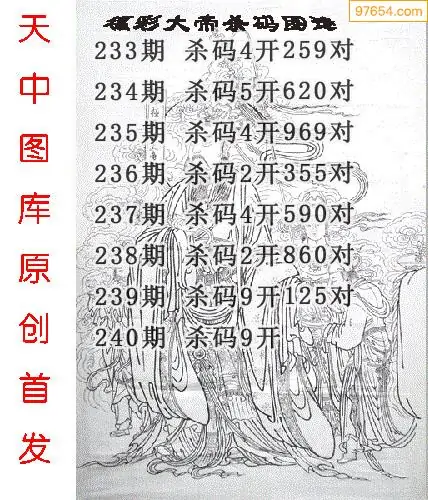 97654.com
福彩大帝杀码图谜
233期 杀码4开259对
234期 杀码5开620对
235期 杀码4开969对
236期 杀码2开355对
237期 杀码4开590对
238期 杀码2开860对
239期 杀码9开125对
240期 杀码9开
天中图库原创首发